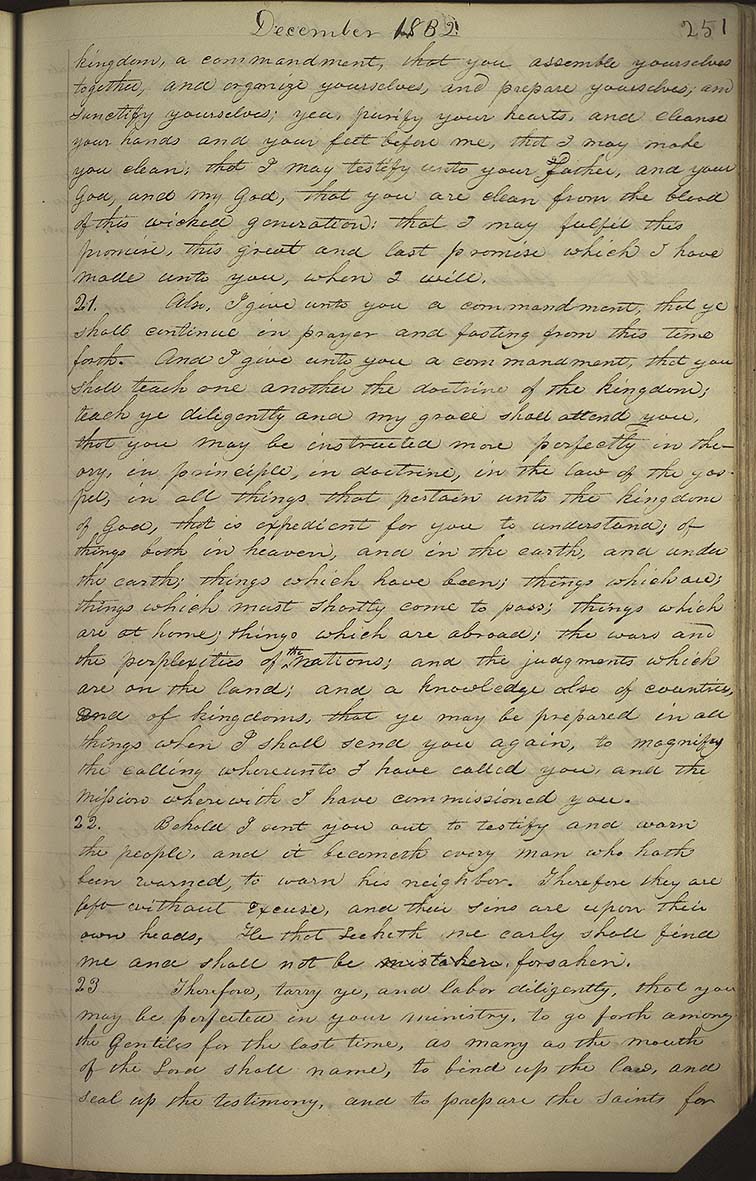 December 1832. 251
kingdom, a commandment, that you assemble yourselves
together, and organize yourselves, and prepare yourselves; and
sanctify yourselves; yea, purify your hearts, and cleanse
your hands and your feet before me, that I may make
you clean; that I may testify unto your Father, and your
God, and my God, that you are clean from the blood
of this wicked generation: that I may fulfil this
promise, this great and last promise which I have
made unto you, when I will.
21. Also, I give unto you a commandment, that ye
shall continue in prayer and fasting from this time
forth. And I give unto you a commandment, that you
shall teach one another the doctrine of the kingdom;
teach ye diligently and my grace shall attend you,
that you may be instructed more perfectly in the-
ory, in principle, in doctrine, in the law of the gos-
pel, in all things that pertain unto the kingdom
of God, that is expedient for you to understand; of
things both in heaven, and in the earth, and under
the earth; things which have been; things which are;
things which must shortly come to pass; things which
are at home; things which are abroad; the wars and
the perplexities of the nations; and the judgments which
are on the land; and a knowledge also of countries,
and of kingdoms, that ye may be prepared in all
things when I shall send you again, to magnify
the calling whereunto I have called you, and the
mission wherewith I have commissioned you.
22. Behold I sent you out to testify and warn
the people, and it becometh every man who hath
been warned, to warn his neighbor. Therefore they are
left without excuse, and their sins are upon their
own heads, He that seeketh me early shall find
me and shall not be mistaken. forsaken.
23 Therefore, tarry ye, and labor diligently, that you
may be perfected in your ministry, to go forth among
the Gentiles for the last time, as many as the mouth
of the Lord shall name, to bind up the law, and
seal up the testimony, and to prepare the saints for